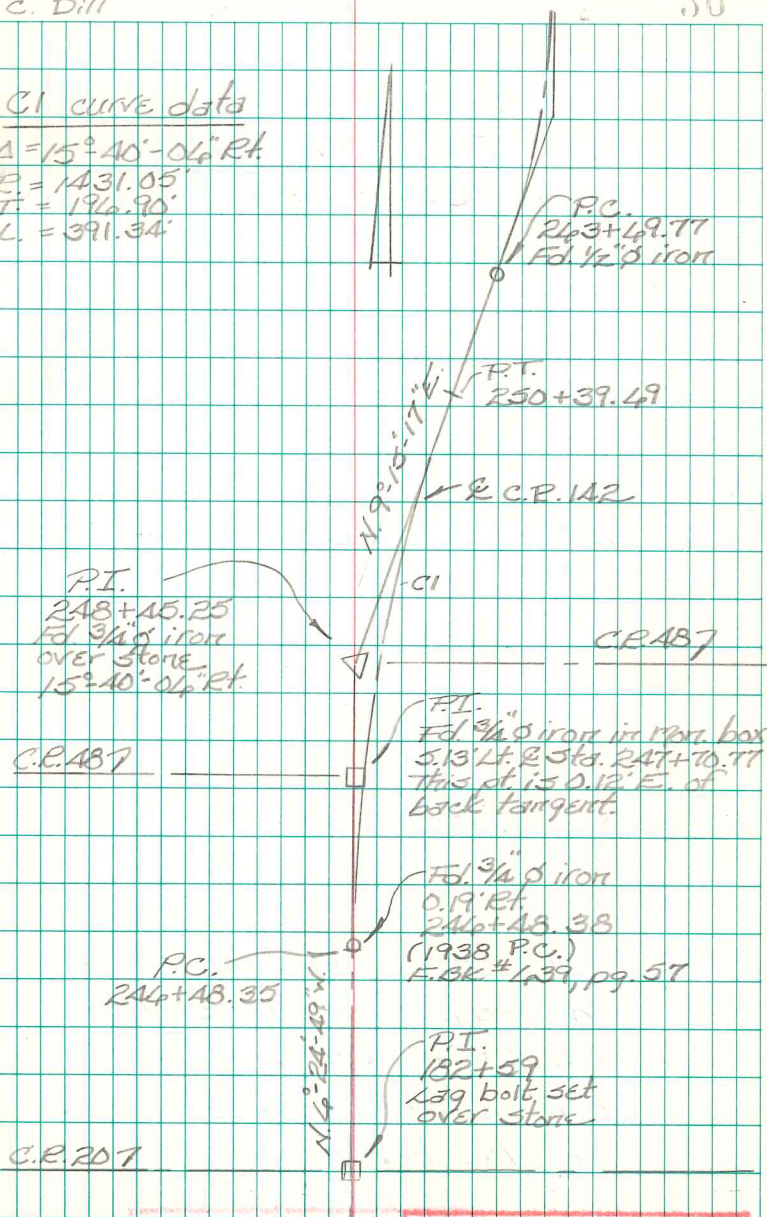 C. Dill
C1 curve data
Δ = 15°-40'-06" Rt.
R. = 1431.05'
T. = 196.90'
L. = 391.34'
P.C.
263+69.77
Fd. 1/2" ø iron
P.T.
250+39.69
N. 9°-15'-17" E.
℄ C.R. 142
C1
P.I.
248+45.25
Fd. 3/4" ø iron
over stone
15°-40'-06" Rt.
C.R. 487
P.I.
Fd. 3/4" ø iron in mon. box
5.13' Lt. ℄ Sta. 247+70.77
This pt. is 0.12' E. of
back tangent.
C.R. 487
Fd. 3/4" ø iron
0.19' Rt.
246+48.38
(1938 P.C.)
F.BK. #639, pg. 57
P.C.
246+48.35
N. 6°-24'-49" W.
P.I.
182+59
Lag bolt set
over stone
C.R. 207